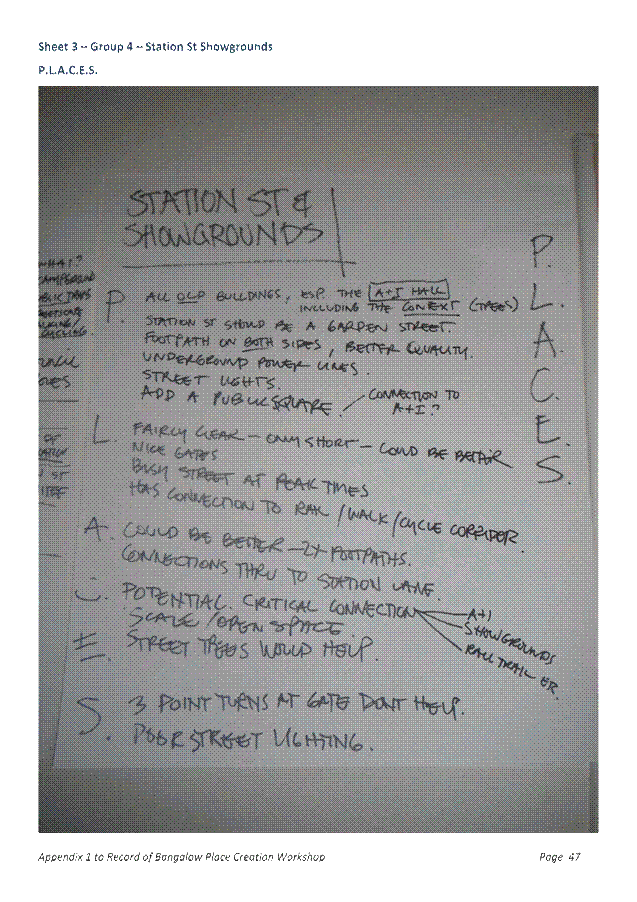 Sheet 3 – Group 4 – Station St Showgrounds
P.L.A.C.E.S.
STATION ST &
SHOWGROUNDS
P. L. A. C. E. S.
WHAT?
P. ALL OLD BUILDINGS, ESP. THE A+I HALL
INCLUDING THE CONTEXT (TREES)
STATION ST SHOULD BE A GARDEN STREET.
FOOTPATH ON BOTH SIDES, BETTER QUALITY.
UNDERGROUND POWER LINES.
STREET LIGHTS.
ADD A PUBLIC SQUARE. / CONNECTION TO
A+I?
L. FAIRLY CLEAR – ONLY SHORT – COULD BE BETTER
NICE GATES
BUSY STREET AT PEAK TIMES
HAS CONNECTION TO RAIL/WALK/CYCLE CORRIDOR.
A. COULD BE BETTER – 2X FOOTPATHS.
CONNECTIONS THRU TO STATION LANE.
C. POTENTIAL. CRITICAL CONNECTION
A+I
SHOWGROUNDS
RAIL TRAIL
SCALE/OPEN SPACE.
E. STREET TREES WOULD HELP.
S. 3 POINT TURNS AT GATE DONT HELP.
POOR STREET LIGHTING.
Appendix 1 to Record of Bangalow Place Creation Workshop
Page 47